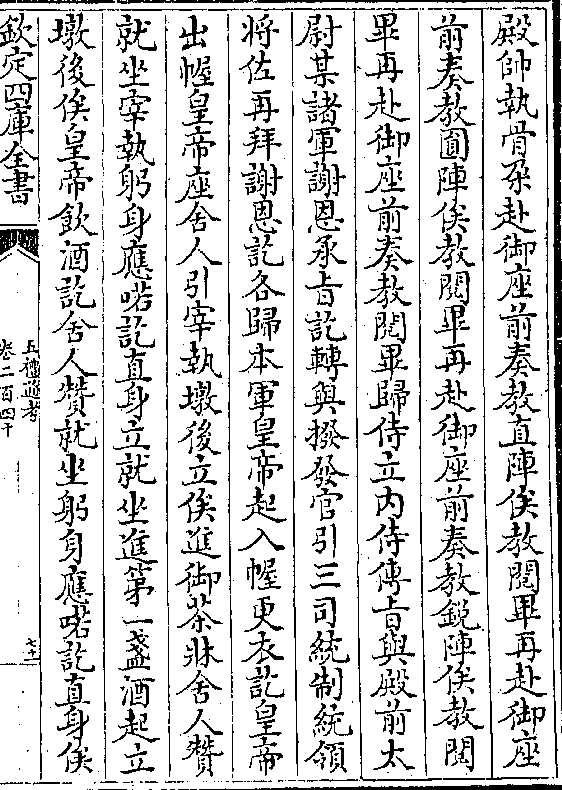 殿帥執骨朶赴御座前奏教直陣俟教閱畢再赴御座
前奏教圓陣俟教閱畢再赴御座前奏教銳陣俟教閱
畢再赴御座前奏教閱畢歸侍立内侍傳旨與殿前太
尉某諸軍謝恩承旨訖轉與撥發官引三司統制統領
將佐再拜謝恩訖各歸本軍皇帝起入幄更衣訖皇帝
出幄皇帝座舍人引宰執墩後立俟進御茶牀舍人贊
就坐宰執躬身應喏訖直身立就坐進第一盞酒起立
墩後俟皇帝飲酒訖舍人贊就坐躬身應喏訖直身俟
欽定四庫全書
五禮通考
卷二百四十